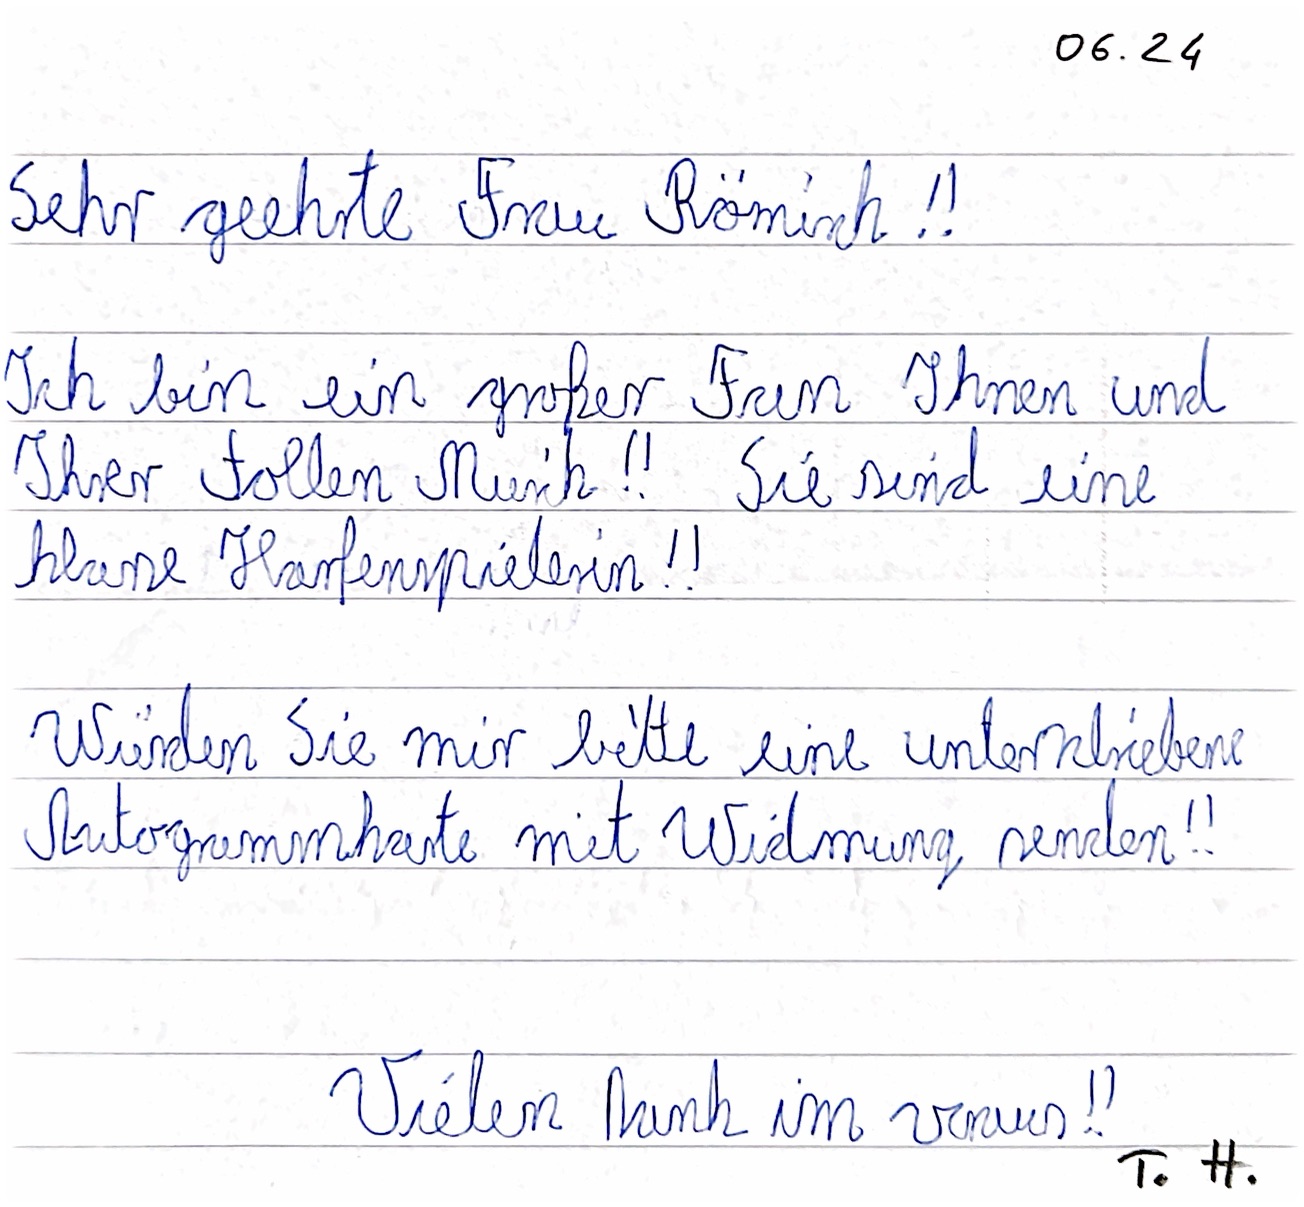 06.24
Sehr geehrte Frau Römisch !!
Ich bin ein großer Fan Ihnen und
Ihrer tollen Musik !! Sie sind eine
klasse Harfenspielerin !!
Würden Sie mir bitte eine unterschriebene
Autogrammkarte mit Widmung senden !!
Vielen Dank im voraus !!
T. H.